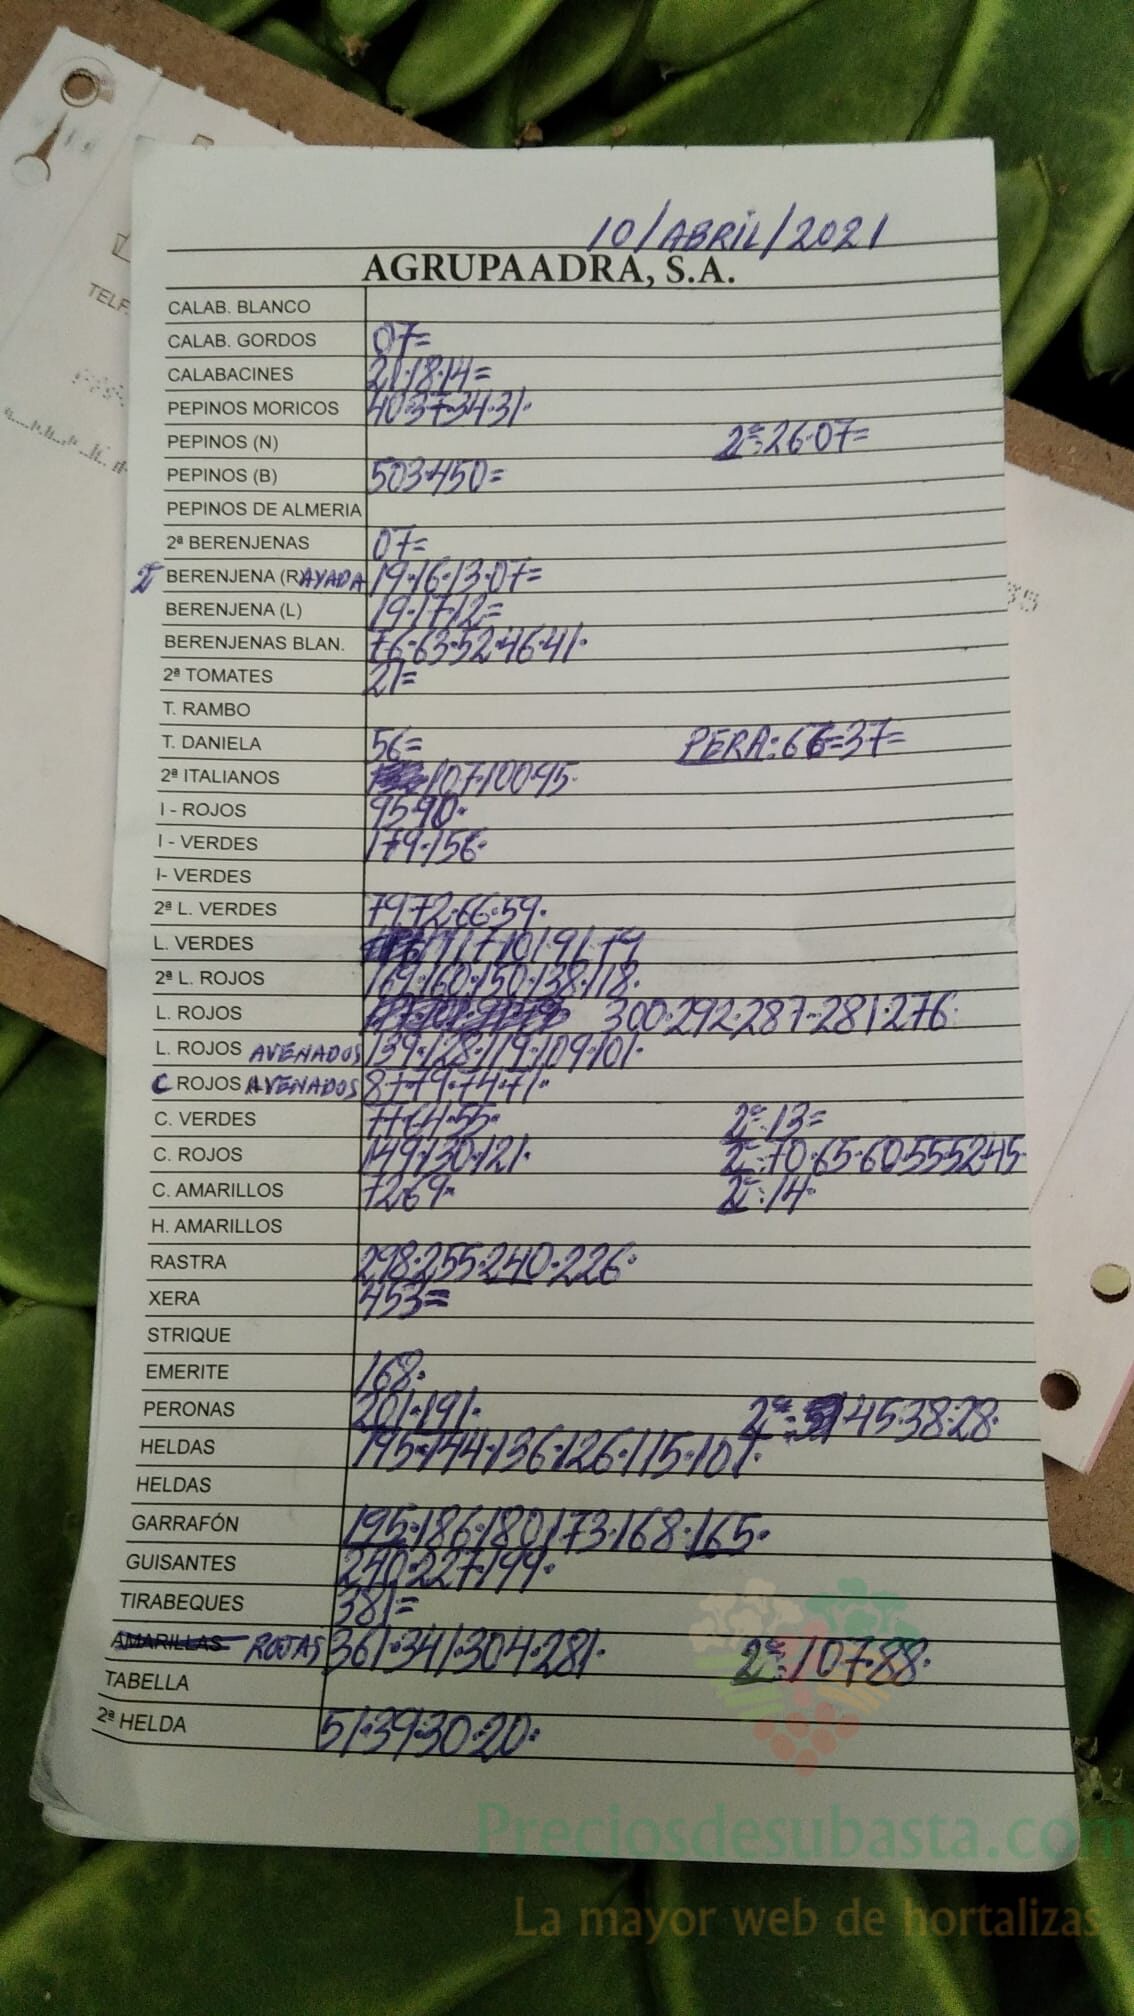 TELF.
10/ABRIL/2021
AGRUPAADRA, S.A.
CALAB. BLANCO
CALAB. GORDOS 07=
CALABACINES 21·18·14=
PEPINOS MORICOS 40·37·34·31·
PEPINOS (N) 2ª:26·07=
PEPINOS (B) 503·450=
PEPINOS DE ALMERIA
2ª BERENJENAS 07=
BERENJENA (RAYADA 19·16·13·07=
BERENJENA (L) 19·17·12=
BERENJENAS BLAN. 76·63·52·46·41·
2ª TOMATES 21=
T. RAMBO
T. DANIELA 56= PERA: 66=37=
2ª ITALIANOS 107·100·95·
I - ROJOS 95·90·
I - VERDES 179·156·
I- VERDES
2ª L. VERDES 79·72·66·59·
L. VERDES 117·101·91·79
2ª L. ROJOS 169·160·150·138·118·
L. ROJOS 300·292·287·281·276·
L. ROJOS AVENADOS 139·128·119·109·101·
C ROJOS AVENADOS 87·79·74·71·
C. VERDES 77·64·55· 2ª:13=
C. ROJOS 149·130·121· 2ª:70·65·60·55·52·45·
C. AMARILLOS 72·69· 2ª:14·
H. AMARILLOS
RASTRA 298·255·240·226·
XERA 453=
STRIQUE
EMERITE 168·
PERONAS 201·191· 2ª: 45·38·28·
HELDAS 195·144·136·126·115·101·
HELDAS
GARRAFÓN 195·186·180·173·168·165·
GUISANTES 240·227·199·
TIRABEQUES 381=
AMARILLAS ROJAS 361·341·304·281· 2ª:107·88·
TABELLA
2ª HELDA 51·39·30·20·
Preciosdesubasta.com
La mayor web de hortalizas